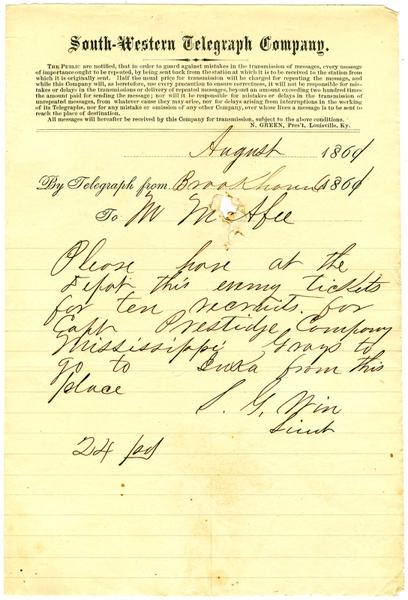 South-Western Telegraph Company.
THE PUBLIC are notified, that in order to guard against mistakes in the transmission of messages, every message
of importance ought to be repeated, by being sent back from the station at which it is to be received to the station from
which it is originally sent. Half the usual price for transmission will be charged for repeating the message, and
while this Company will, as heretofore, use every precaution to ensure correctness, it will not be responsible for mis-
takes or delays in the transmission or delivery of repeated messages, beyond an amount exceeding two hundred times
the amount paid for sending the message; nor will it be responsible for mistakes or delays in the transmission of
unrepeated messages, from whatever cause they may arise, nor for delays arising from interruptions in the working
of its Telegraphs, nor for any mistake or omission of any other Company, over whose lines a message is to be sent to
reach the place of destination.
All messages will hereafter be received by this Company for transmission, subject to the above conditions.
N. GREEN, Pres't, Louisville, Ky.
August 1861
By Telegraph from Brookhaven 1861
To M McAfee
Please have at the
Depot this eveny tickets
for ten recruits for
Capt Prestidge Company
Mississippi Grays to
go to Iuka from this
place
S. G. Win
Lieut
24 pd